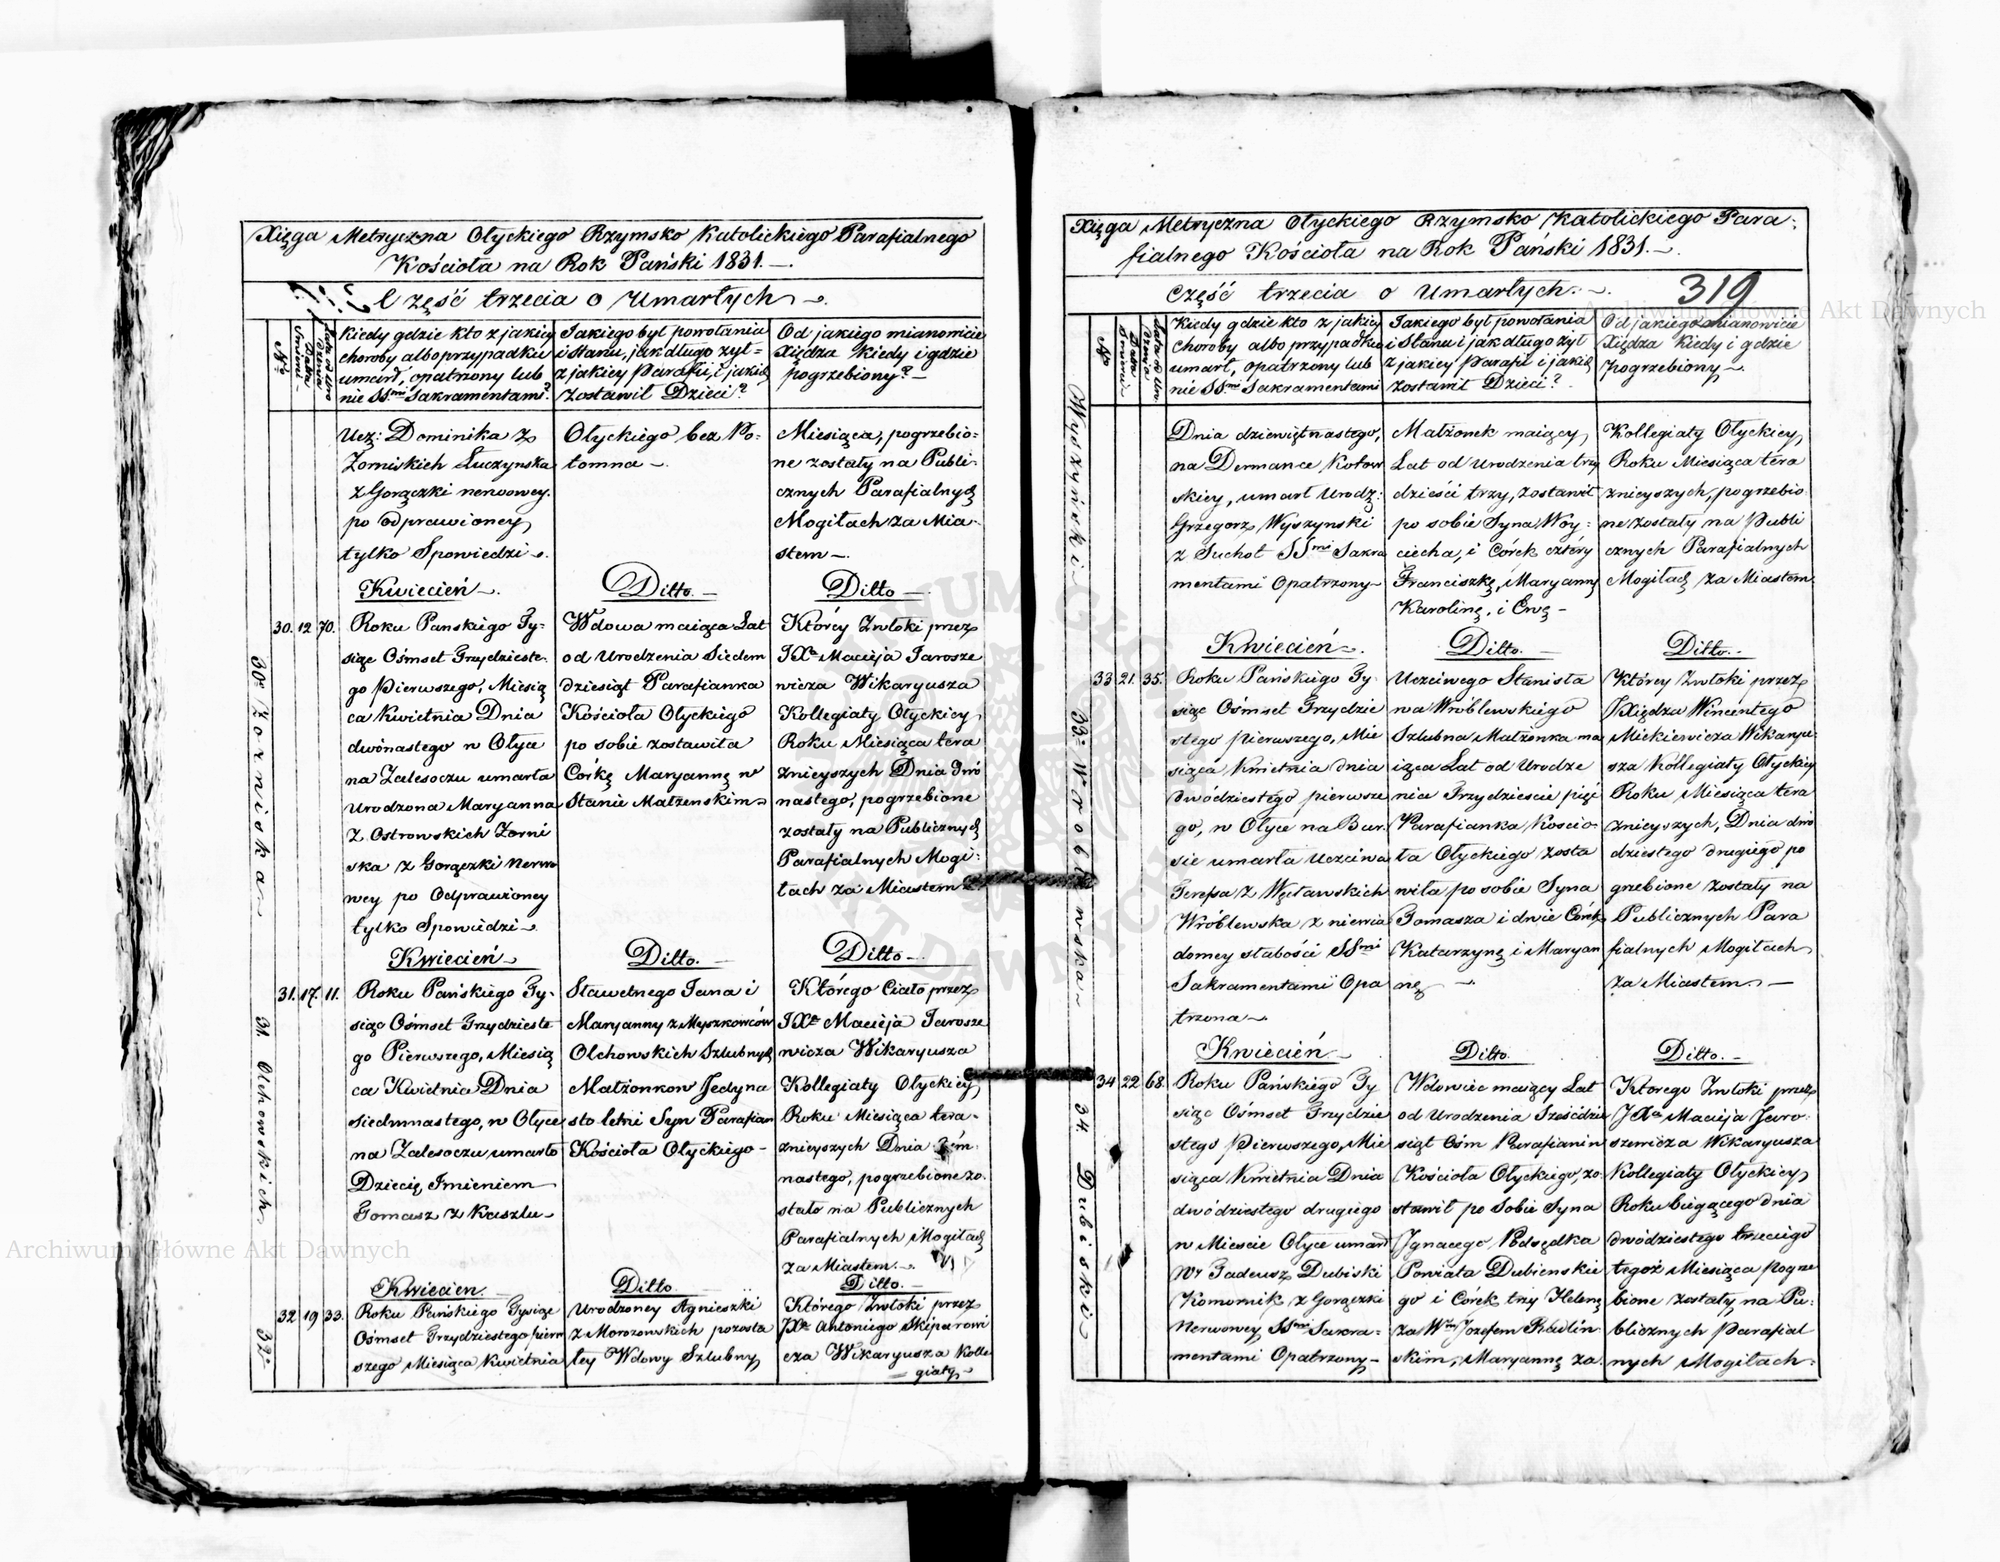 Xięga Metryczna Ołyckiego Rzymsko Katolickiego Parafialnego
Kościoła na Rok Pański 1831.—.
Część trzecia o Umarłych —.
No
Dnia
Lata od Uro
Kiedy gdzie kto z jakiey
choroby albo przypadku
umarł, opatrzony lub
nie SSmi Sakramentami?
Jakiego był powołania
i stanu, jak długo żył =
z jakiey Parafii, i jakie
zostawił Dzieci?
Od jakiego mianowicie
Xiędza kiedy i gdzie
pogrzebiony? —
Ucz: Dominika z
Żomiskich Łuczynska
z Gorączki nerwowey.
po odprawioney
tylko Spowiedzi —.
Ołyckiego bez Po:
tomna —.
Miesiąca, pogrzebio:
ne zostały na Publi:
cznych Parafialnych
Mogiłach za Mia:
stem —.
Kwiecień —.
Ditto. —
Ditto —.
30. 12 70.
30. Żornioka
Roku Panskiego Ty:
siąc Ośmset Trzydzieste:
go Pierwszego, Miesią
ca Kwietnia Dnia
dwónastego w Ołyce
na Zalesoczu umarła
Urodzona Maryanna
z Ostrowskich Żorni
ska z Gorączki Nerwo
wey po Odprawioney
tylko Spowiedzi —.
Wdowa maiąca Lat
od Urodzenia Siedem
dziesiąt Parafianka
Kościoła Ołyckiego
po sobie zostawiła
Córkę Maryannę w
Stanie Małżenskim —
Którey Zwłoki przez
JXa Macieja Jarosze
wicza Wikaryusza
Kollegiaty Ołyckiey
Roku Miesiąca tera
znieyszych Dnia dwó
nastego, pogrzebione
zostały na Publicznych
Parafialnych Mogi:
łach za Miastem —
Kwiecień —
Ditto. —
Ditto. —.
31. 17. 11.
31. Olchowskich
Roku Pańskiego Ty:
siąc Ośmset Trzydzieste
go Pierwszego, Miesią
ca Kwietnia Dnia
siedmnastego, w Ołyce
na Zalesoczu umarło
Dziecię Imieniem
Tomasz z Kaszlu —
Sławetnego Jana i
Maryanny z Myszkowców
Olchowskich Szlubnych
Małżonkow Jedyna
sto letni Syn Parafian
Kościoła Ołyckiego —
Którego Ciało przez
JXa Macieja Jarosze
wicza Wikaryusza
Kollegiaty Ołyckiey
Roku Miesiąca tera:
znieyszych Dnia
nastego, pogrzebione zo:
stało na Publicznych
Parafialnych Mogiłach
za Miastem. —.
Kwiecien.
Ditto.
Ditto. —
32 19 33.
32.
Roku Pańskiego Tysiąc
Ośmset Trzydziestego pierw
szego Miesiąca Kwietnia
Urodzoney Agnieszki
z Morozowskich pozosta
łey Wdowy Szlubny
Którego Zwłoki przez
JXa Antoniego Skiparowi
cza Wikaryusza Kolle
giaty —
Xięga Metryczna Ołyckiego Rzymsko Katolickiego Para:
fialnego Kościoła na Rok Pański 1831. —.
Część trzecia o Umarłych. —.
319
No
Kiedy gdzie kto z jakiey
choroby albo przypadku
umarł, opatrzony lub
nie SSmi Sakramentami
Jakiego był powołania
i Stanu i jak długo żył
z jakiey Parafii i jakie
zostawił Dzieci?
Od jakiego mianowicie
Xiędza Kiedy i gdzie
pogrzebiony —.
Wyszyński
Dnia dziewiętnastego,
na Dermance Kotow
skiey, umarł Urodz:
Grzegorz Wyszynski
z Suchot SSmi Sakra
mentami Opatrzony —
Małżonek maiący
Lat od Urodzenia trzy
dzieści trzy, zostawił
po sobie Syna Woy:
ciecha, i Córek cztéry
Franciszkę, Maryannę
Karolinę, i Ewę —
Kollegiaty Ołyckiey
Roku Miesiąca tera
znieyszych, pogrzebio:
ne zostały na Publi
cznych Parafialnych
Mogiłach za Miastem.
Kwiecień —.
Ditto. —
Ditto. —
33 21. 35.
33. Wroblewska
Roku Pańskiego Ty:
siąc Ośmset Trzydzie
stego pierwszego, Mie
siąca Kwietnia dnia
dwódziestego pierwsze
go, w Ołyce na Bur.
sie umarła Uczciwa
Teressa z Węcławskich
Wróblewska z niewia
domey słabości SSmi
Sakramentami Opa
trzona —.
Uczciwego Stanisła
wa Wróblewskiego
Szlubna Małżonka ma
iąca Lat od Urodze
nia Trzydzieście pięć
Parafianka Koscio:
ła Ołyckiego zosta
wiła po sobie Syna
Tomasza i dwie Córek
Katarzynę i Maryan
nę —
Którey Zwłoki przez
JXiędza Wincentego
Mickiewicza Wikaryu:
sza Kollegiaty Ołyckiey
Roku Miesiąca tera
znieyszych, Dnia dwó
dziestego drugiego po
grzebione zostały na
Publicznych Para
fialnych Mogiłach
za Miastem. —
Kwiecień —
Ditto.
Ditto. —
34 22 68.
34. Dubiski
Roku Pańskiego Ty
siąc Ośmset Trzydzie
stego Pierwszego, Mie
siąca Kwietnia Dnia
dwódziestego drugiego
w Miescie Ołyce umarł
Wy Tadeusz Dubiski
Komornik z Gorączki
Nerwowey, SSmi Sakra:
mentami Opatrzony —
Wdowiec maiący Lat
od Urodzenia Sześcdzie
siąt Ośm Parafianin
Kościoła Ołyckiego, zo:
stawił po Sobie Syna
Ignacego Podsędka
Powiata Dubienskie
go i Córek trzy Helenę
za Wm Jozefem Radlin
skim, Maryannę za
Ktorego Zwłoki przez
JXa Macieja Jaro:
szewicza Wikaryusza
Kollegiaty Ołyckiey
Roku bieżącego dnia
dwódziestego trzeciego
tegoż Miesiąca pogrze
bione zostały, na Pu:
blicznych Parafial
nych Mogiłach:
Archiwum Główne Akt Dawnych
Archiwum Główne Akt Dawnych